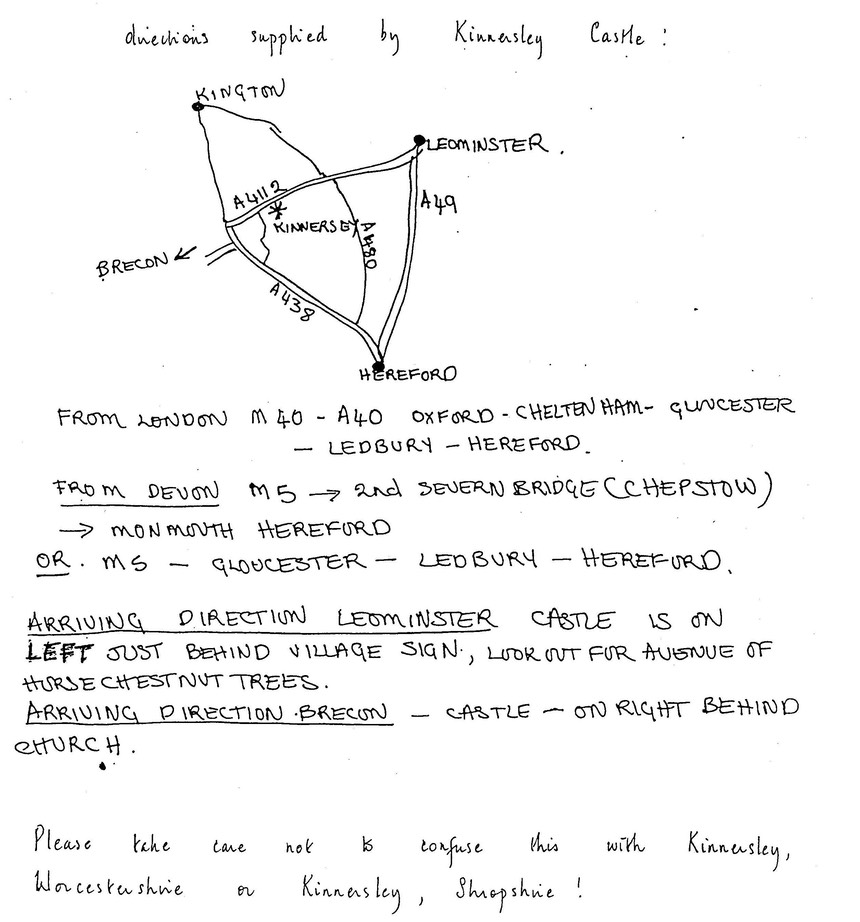 directions supplied by Kinnersley Castle :
KINGTON
LEOMINSTER .
A4112
A49
KINNERSEY
A480
BRECON
A438
HEREFORD
FROM LONDON M40 - A40 OXFORD - CHELTENHAM - GLOUCESTER
— LEDBURY — HEREFORD.
FROM DEVON M5 → 2nd SEVERN BRIDGE (CHEPSTOW)
→ MONMOUTH HEREFORD
OR. M5 — GLOUCESTER — LEDBURY — HEREFORD.
ARRIVING DIRECTION LEOMINSTER CASTLE IS ON
LEFT JUST BEHIND VILLAGE SIGN., LOOK OUT FOR AVENUE OF
HORSE CHESTNUT TREES.
ARRIVING DIRECTION BRECON — CASTLE — ON RIGHT BEHIND
CHURCH.
Please take care not to confuse this with Kinnersley,
Worcestershire or Kinnersley, Shropshire !